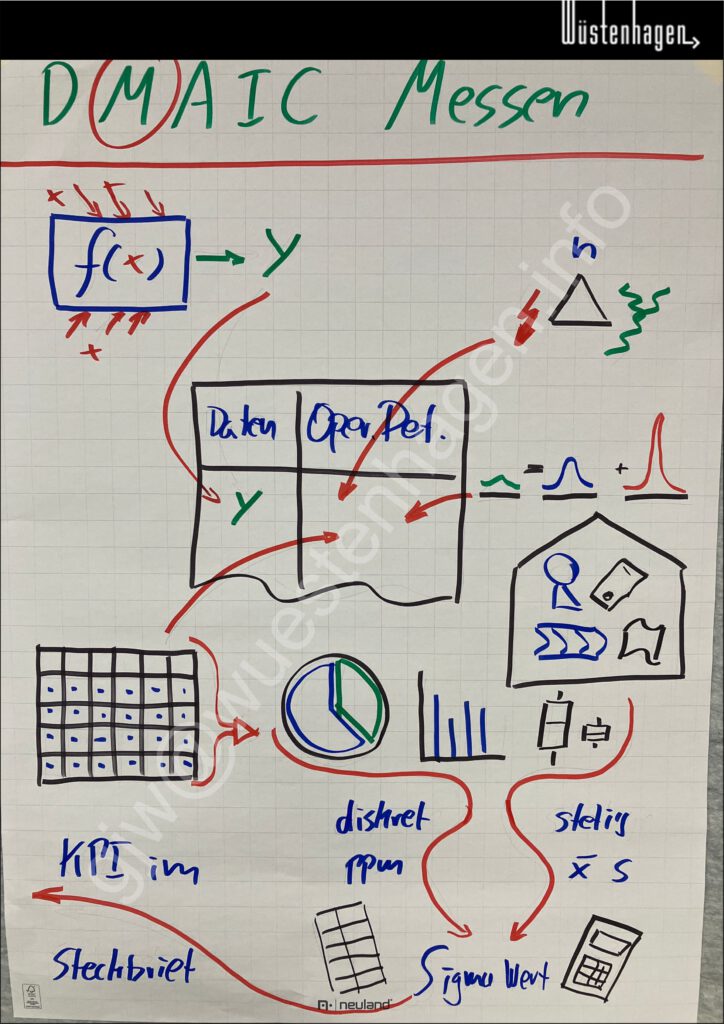 Wüstenhagen
DMAIC Messen
x
f(x) → y
x
n
Daten Oper. Def.
y
= +
diskret stetig
ppm x̄ s
KPI im
Steckbrief
Sigma Wert
neuland
giw@wuestenhagen.info